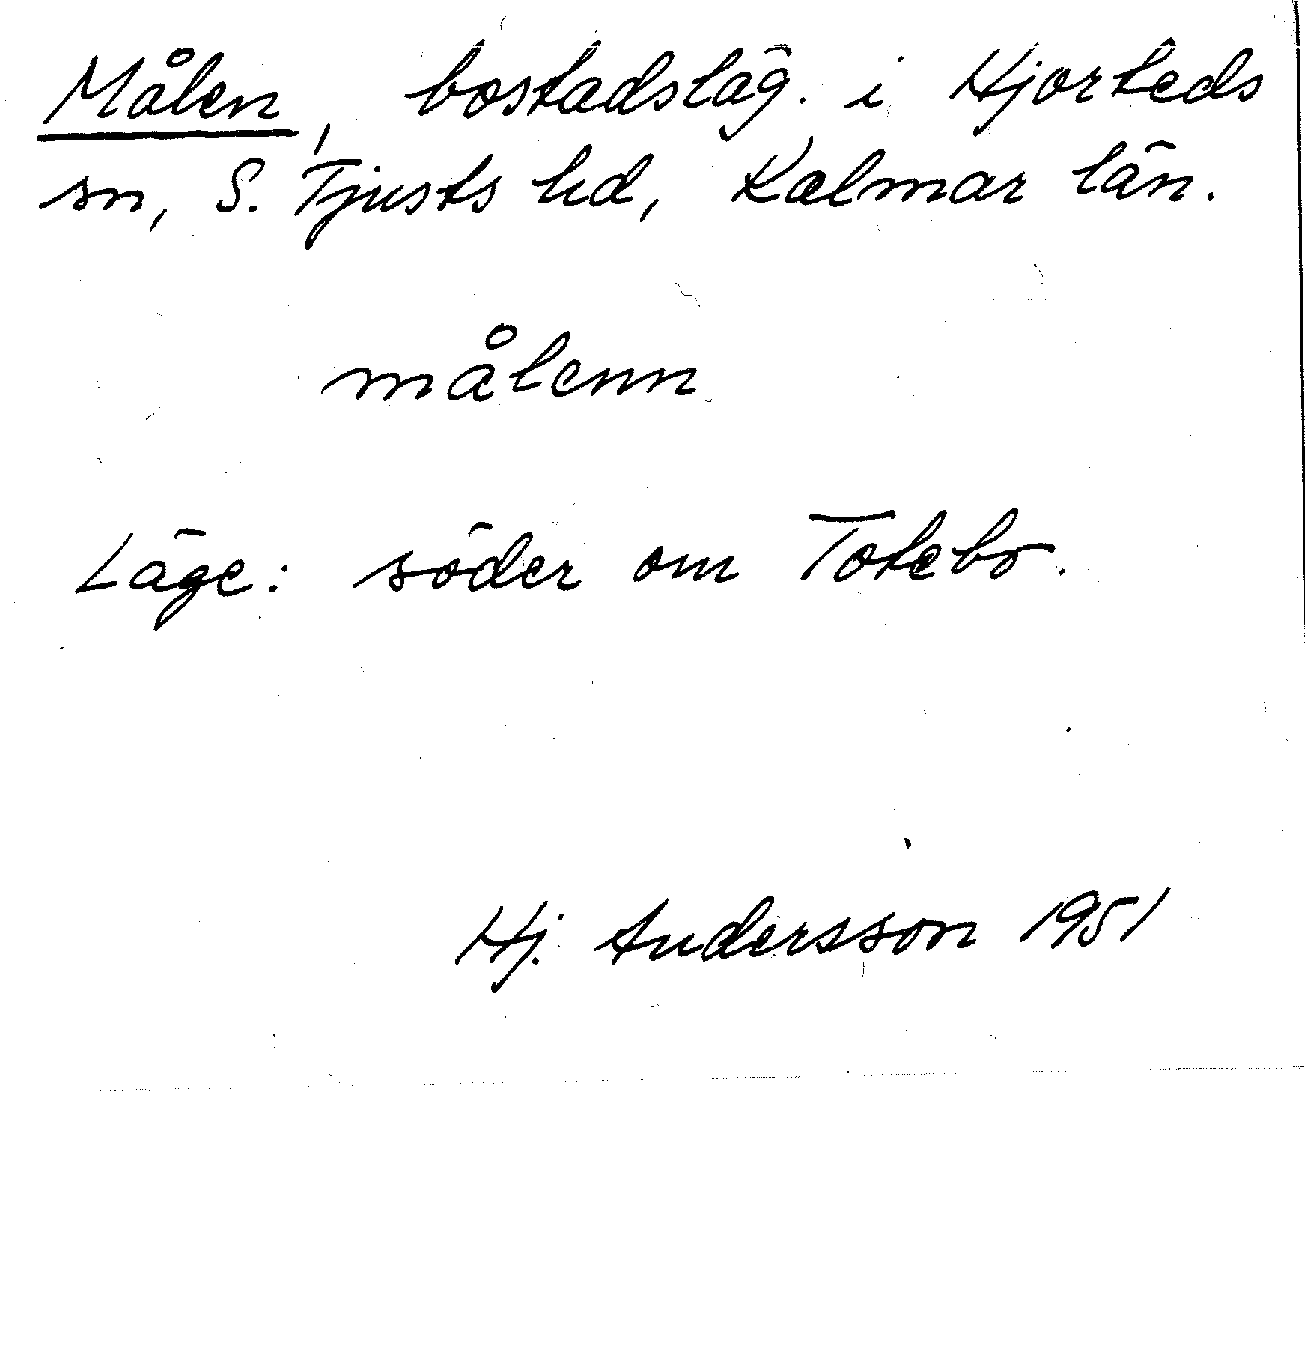 Målen, bostadsläg. i Hjorteds
sn, S. Tjusts hd, Kalmar län.
målenn
Läge: söder om Totebo.
Hj. Andersson 1951